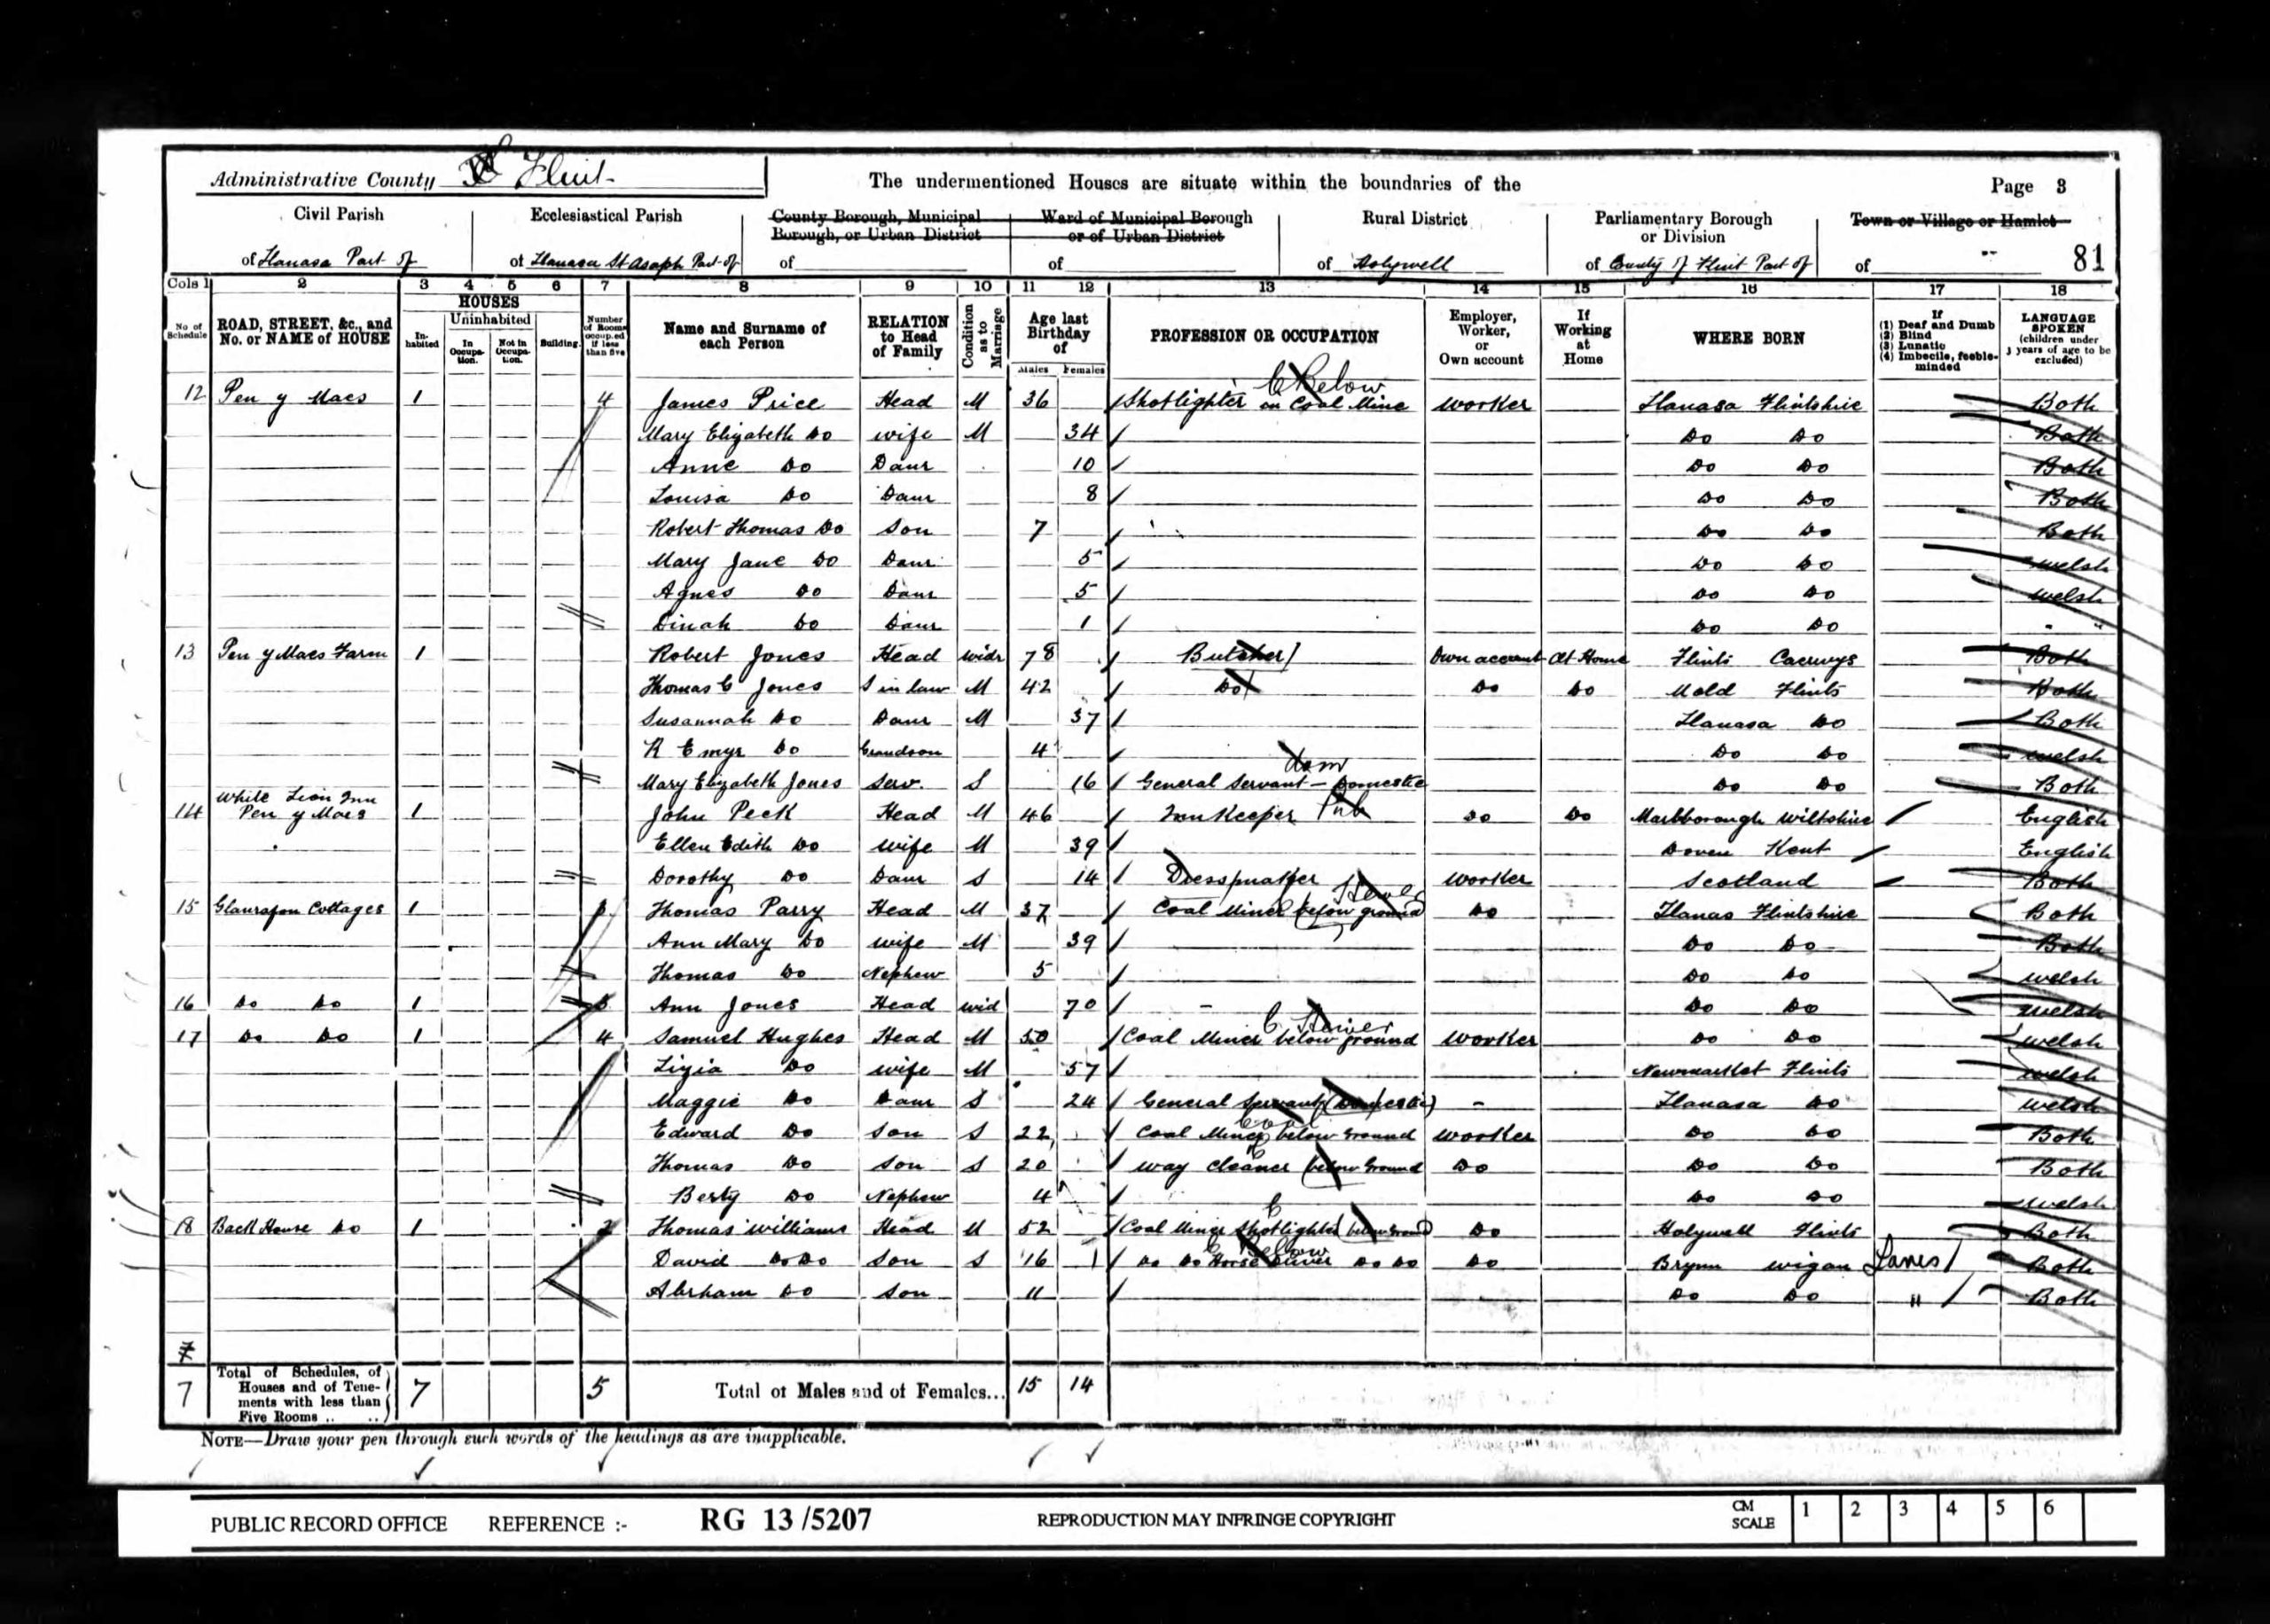 Administrative County Flint
The undermentioned Houses are situate within the boundaries of the
Page 3
Civil Parish
of Llanasa Part of
Ecclesiastical Parish
of Llanasa St Asaph Part of
County Borough, Municipal Borough, or Urban District
of
Ward of Municipal Borough or of Urban District
of
Rural District
of Holywell
Parliamentary Borough or Division
of County of Flint Part of
Town or Village or Hamlet
of
81
Cols 1 2 3 4 5 6 7 8 9 10 11 12 13 14 15 16 17 18
No of Schedule
ROAD, STREET, &c., and No. or NAME of HOUSE
HOUSES
In-habited
Uninhabited
In Occupa-tion.
Not in Occupa-tion.
Building.
Number of Rooms occupied if less than five
Name and Surname of each Person
RELATION to Head of Family
Condition as to Marriage
Age last Birthday of
Males Females
PROFESSION OR OCCUPATION
Employer, Worker, or Own account
If Working at Home
WHERE BORN
If
(1) Deaf and Dumb
(2) Blind
(3) Lunatic
(4) Imbecile, feeble-minded
LANGUAGE SPOKEN (children under 3 years of age to be excluded)
12 Pen y Maes 1 4 James Price Head M 36 Shotlighter in Coal Mine Below worker Llanasa Flintshire Both
Mary Elizabeth Do wife M 34 Do Do Both
Anne Do Daur 10 Do Do Both
Louisa Do Daur 8 Do Do Both
Robert Thomas Do Son 7 Do Do Both
Mary Jane Do Daur 5 Do Do welsh
Agnes Do Daur 5 Do Do welsh
Dinah Do Daur 1 Do Do " "
13 Pen y Maes Farm 1 Robert Jones Head widr 78 Butcher Own account At Home Flints Caerwys Both
Thomas C Jones S in law M 42 Do Do Do Mold Flints Both
Susannah Do Daur M 37 Llanasa Do Both
R Emyr Do Grandson 4 Do Do welsh
Mary Elizabeth Jones Serv. S 16 General Servant - Domestic dom Do Do Both
14 White Lion Inn Pen y Maes 1 John Peck Head M 46 InnKeeper Pub Do Do Marlborough Wiltshire English
Ellen Edith Do wife M 39 Dover Kent English
Dorothy Do Daur S 14 Dressmaker worker Scotland Both
15 Glanrafon Cottages 1 3 Thomas Parry Head M 37 Coal Miner (below ground) Hewer Do Llanas Flintshire Both
Ann Mary Do wife M 39 Do Do Both
Thomas Do Nephew 5 Do Do welsh
16 Do Do 1 Ann Jones Head wid 70 - Do Do welsh
17 Do Do 1 4 Samuel Hughes Head M 50 Coal Miner below ground C Hewer worker Do Do welsh
Lizia Do wife M 57 Newmarket Flints welsh
Maggie Do Daur S 24 General Servant (Domestic) - Llanasa Do welsh
Edward Do Son S 22 Coal Miner below Ground Coal worker Do Do Both
Thomas Do Son S 20 way cleaner (below Ground Do Do Do Both
Berty Do Nephew 4 Do Do welsh
18 Back House Do 1 2 Thomas Williams Head M 52 Coal Miner Shotlighter (below Ground) Do Holywell Flints Both
David Do Do Son S 16 Do Do Horse Driver Do Do Below Do Brynn wigan Lancs Both
Abrham Do Son 11 Do Do " Both
7
7 Total of Schedules, of Houses and of Tene-ments with less than Five Rooms .. .. 7 5 Total of Males and of Females... 15 14
NOTE—Draw your pen through such words of the headings as are inapplicable.
PUBLIC RECORD OFFICE REFERENCE :- RG 13/5207 REPRODUCTION MAY INFRINGE COPYRIGHT CM SCALE 1 2 3 4 5 6